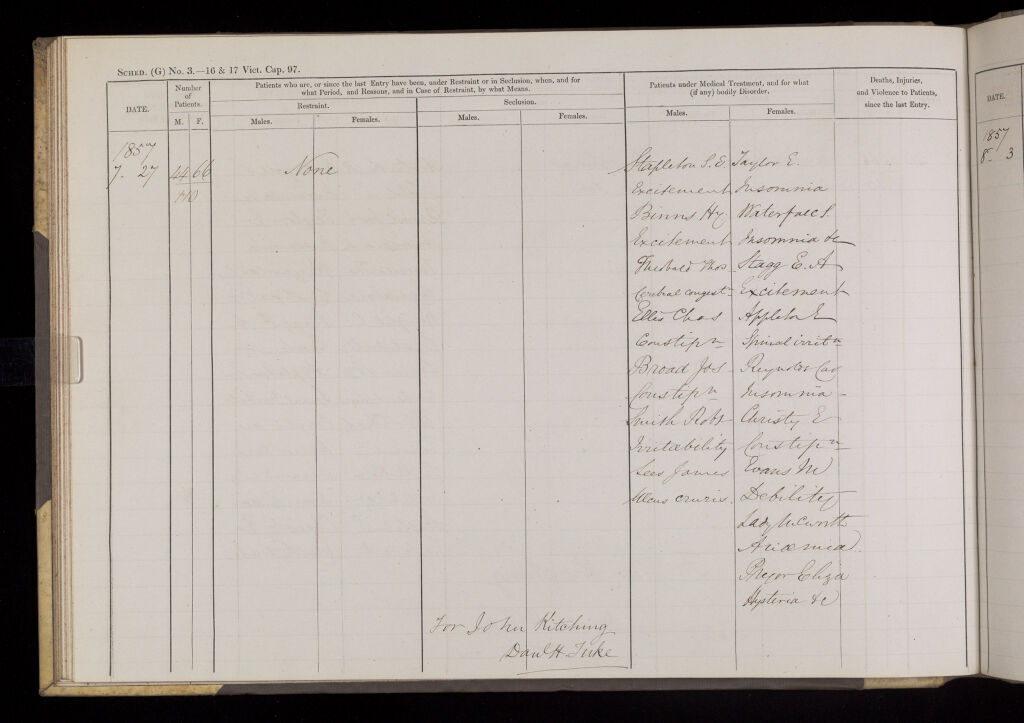 SCHED. (G) No. 3.—16 & 17 Vict. Cap. 97.
DATE.
Number of Patients.
M. F.
Patients who are, or since the last Entry have been, under Restraint or in Seclusion, when, and for
what Period, and Reasons, and in Case of Restraint, by what Means.
Restraint.
Seclusion.
Males.
Females.
Males.
Females.
Patients under Medical Treatment, and for what
(if any) bodily Disorder.
Males.
Females.
Deaths, Injuries,
and Violence to Patients,
since the last Entry.
1857
7. 27 44 66 None
110
Stapleton S. E. Taylor E.
Excitement Insomnia
Binns Hy Waterfall S.
Excitement Insomnia &c
Theobald Thos Stagg E. A
Cerebral congestn Excitement
Ellis Chas Appleton E
Constipn Spinal irritn
Broad Jos Reynolds Car
Constipn Insomnia
Smith Robt Christy E
Irritability Constipn
Lees James Evans M
Ulcus cruris. Debility
Lady
Anæmia
Pryor Eliza
Hysteria &c
For John Kitching
Danl H Tuke
DATE.
1857
8. 3